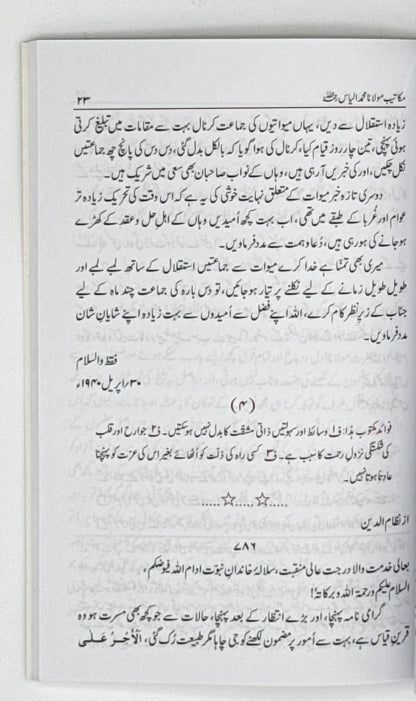 مکاتیب مولانا محمد الیاس رحمۃ اللہ علیہ ۲۳
زیادہ استقلال سے دیں، یہاں میواتیوں کی جماعت کرنال بہت سے مقامات میں تبلیغ کرتی
ہوئی پہنچی، تین چار روز قیام کیا، کرنال کی ہوا گویا کہ بالکل بدل گئی، دس دس کی پانچ چھ جماعتیں
نکل چکیں، اور کی خبریں آ رہی ہیں، وہاں کے نواب صاحبان بھی سعی میں شریک ہیں۔
دوسری تازہ خبر میوات کے متعلق نہایت خوشی کی یہ ہے کہ اس وقت کی تحریک زیادہ تر
عوام اور غُربا کے طبقے میں تھی، اب بہت کچھ اُمیدیں وہاں کے اہلِ حل و عقد کے کھڑے
ہو جانے کی ہو رہی ہیں، دُعا و ہمت سے مدد فرماویں۔
میری بھی تمنا ہے خدا کرے میوات سے جماعتیں استقلال کے ساتھ لمبے لمبے اور
طویل طویل زمانے کے لیے نکلنے پر تیار ہو جائیں، تو دس بارہ کی جماعت چند ماہ کے لیے
جناب کے زیرِ نظر کام کرے، اللہ اپنے فضل سے اُمیدوں سے بہت زیادہ اپنے شایانِ شان
مدد فرماویں۔
فقط والسلام
۳۰؍اپریل ۱۹۴۰ء
(۴)
فوائد مکتوب ہذا: ف۱ وسائط اور سہولتیں ذاتی مشقت کا بدل نہیں ہو سکتیں۔ ف۲ جوارح اور قلب
کی شکستگی نزولِ رحمت کا سبب ہے۔ ف۳ کسی راہ کی ذلت کو اُٹھائے بغیر اس کی عزت کو پہنچنا
عادتاً ہوتا نہیں۔
.....☆.....☆.....
از نظام الدین
۷۸۶
بعالی خدمت والا درجت عالی منقبت، سلالۂ خاندانِ نبوّت ادام اللہ فیوضکم،
السلام علیکم ورحمۃ اللہ و برکاتہٗ!
گرامی نامہ پہنچا، اور بڑے انتظار کے بعد پہنچا، حالات سے جو کچھ بھی مسرت ہو وہ
قرینِ قیاس ہے، بہت سے اُمور پر مضمون لکھنے کو جی چاہا مگر طبیعت رُک گئی، الْأَجْرُ عَلَى